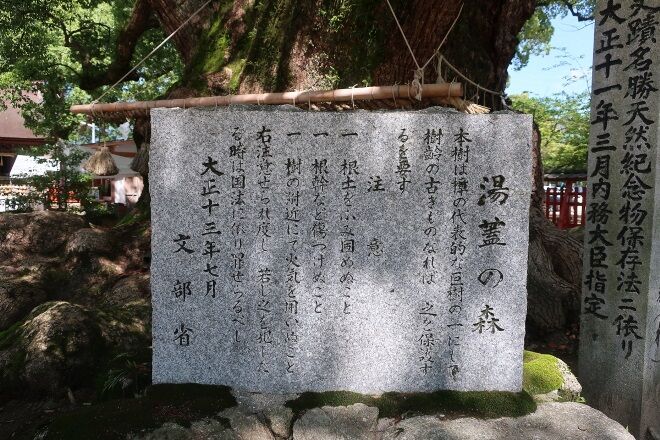 湯蓋の森
本樹は樟の代表的な巨樹の一にして
樹齢の古きものなれは之を保護す
るを要す
注意
一 根土をふみ固めぬこと
一 根幹を傷つけぬこと
一 樹の附近にて火気を用いぬこと
右注意せられ度し若し之を犯した
る時は国法に依り罪せらるべし
大正十三年七月
文部省
史蹟名勝天然紀念物保存法ニ依リ
大正十一年三月内務大臣指定